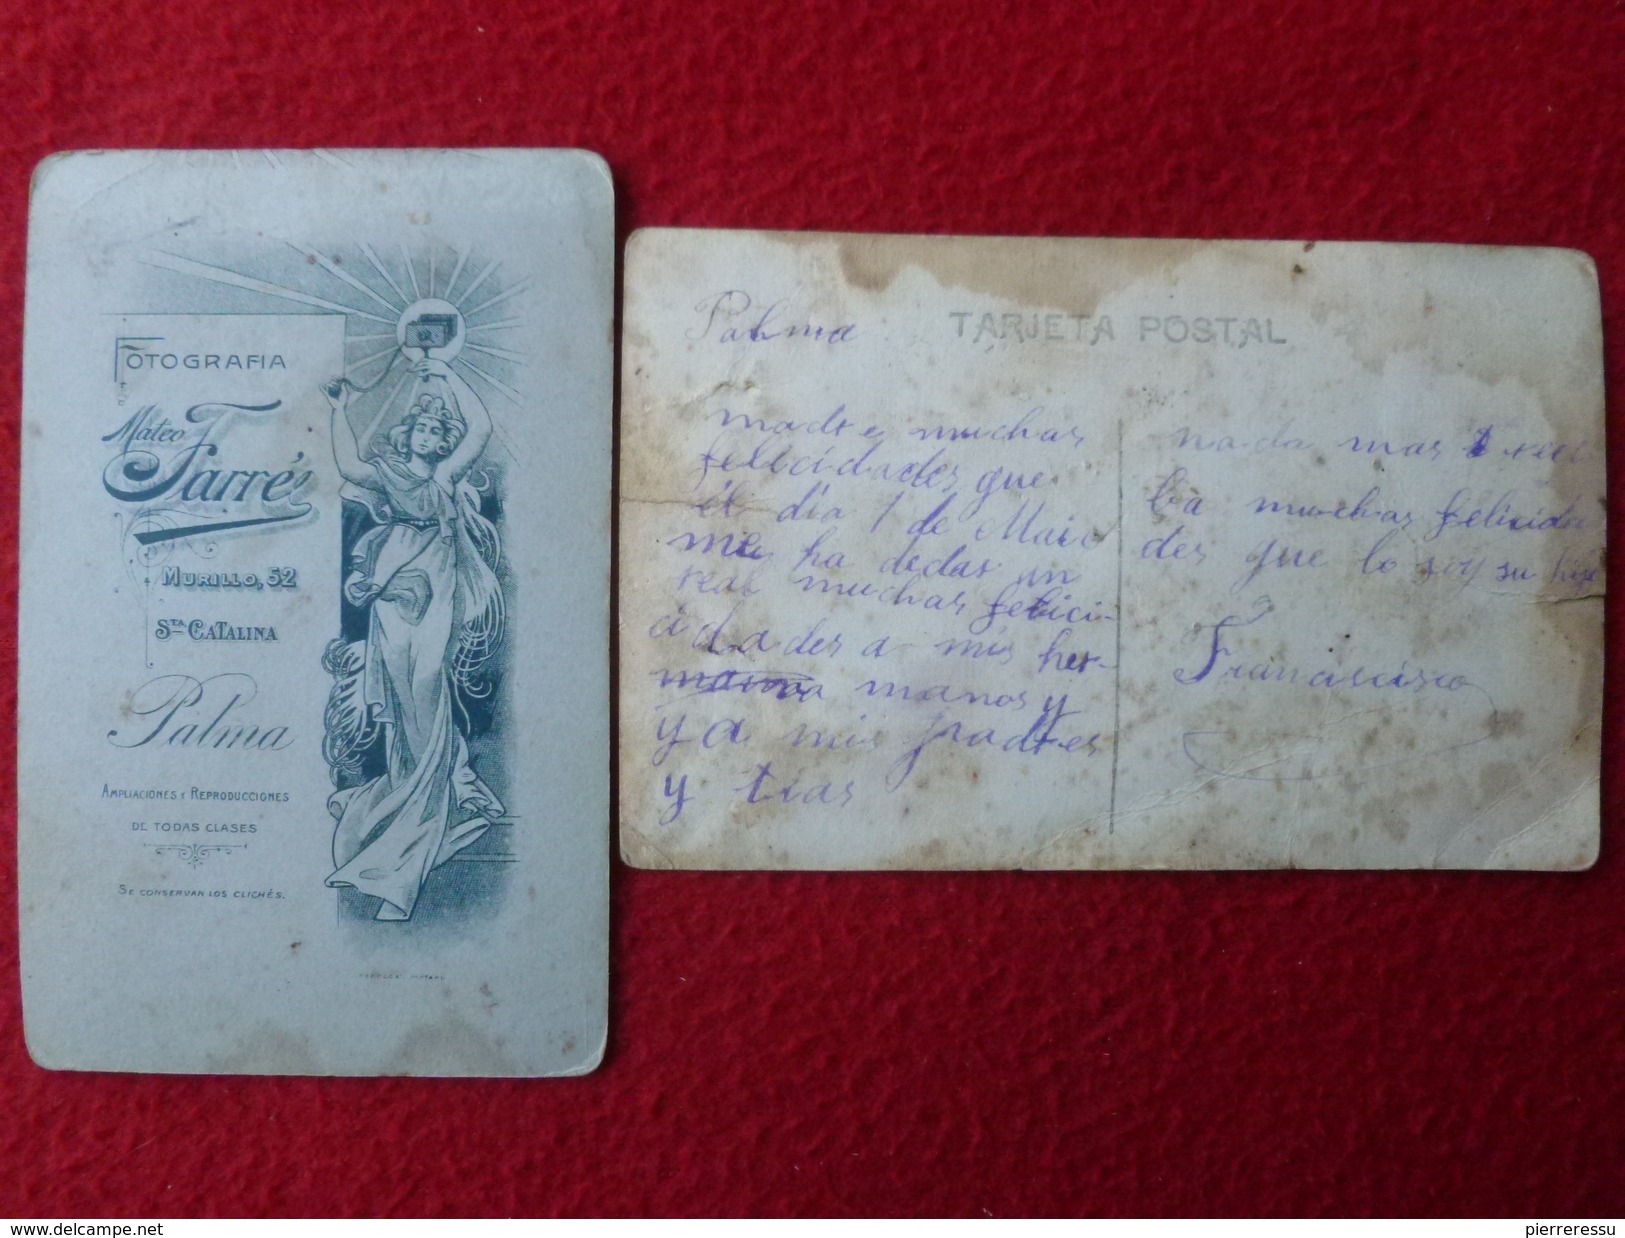 FOTOGRAFIA
Mateo Tarrés
MURILLO, 52
STA CATALINA
Palma
AMPLIACIONES Y REPRODUCCIONES
DE TODAS CLASES
SE CONSERVAN LOS CLICHÉS.
TARJETA POSTAL
Palma
madre muchas
felicidades que
el día 1 de Maio
me ha dedar un
real muchas felici-
dades a mis her-
manos y
y a mis padres
y tias
nada mas reci
ba muchas felicida
des que lo soy su hijo
Francisco
www.delcampe.net
pierreressu